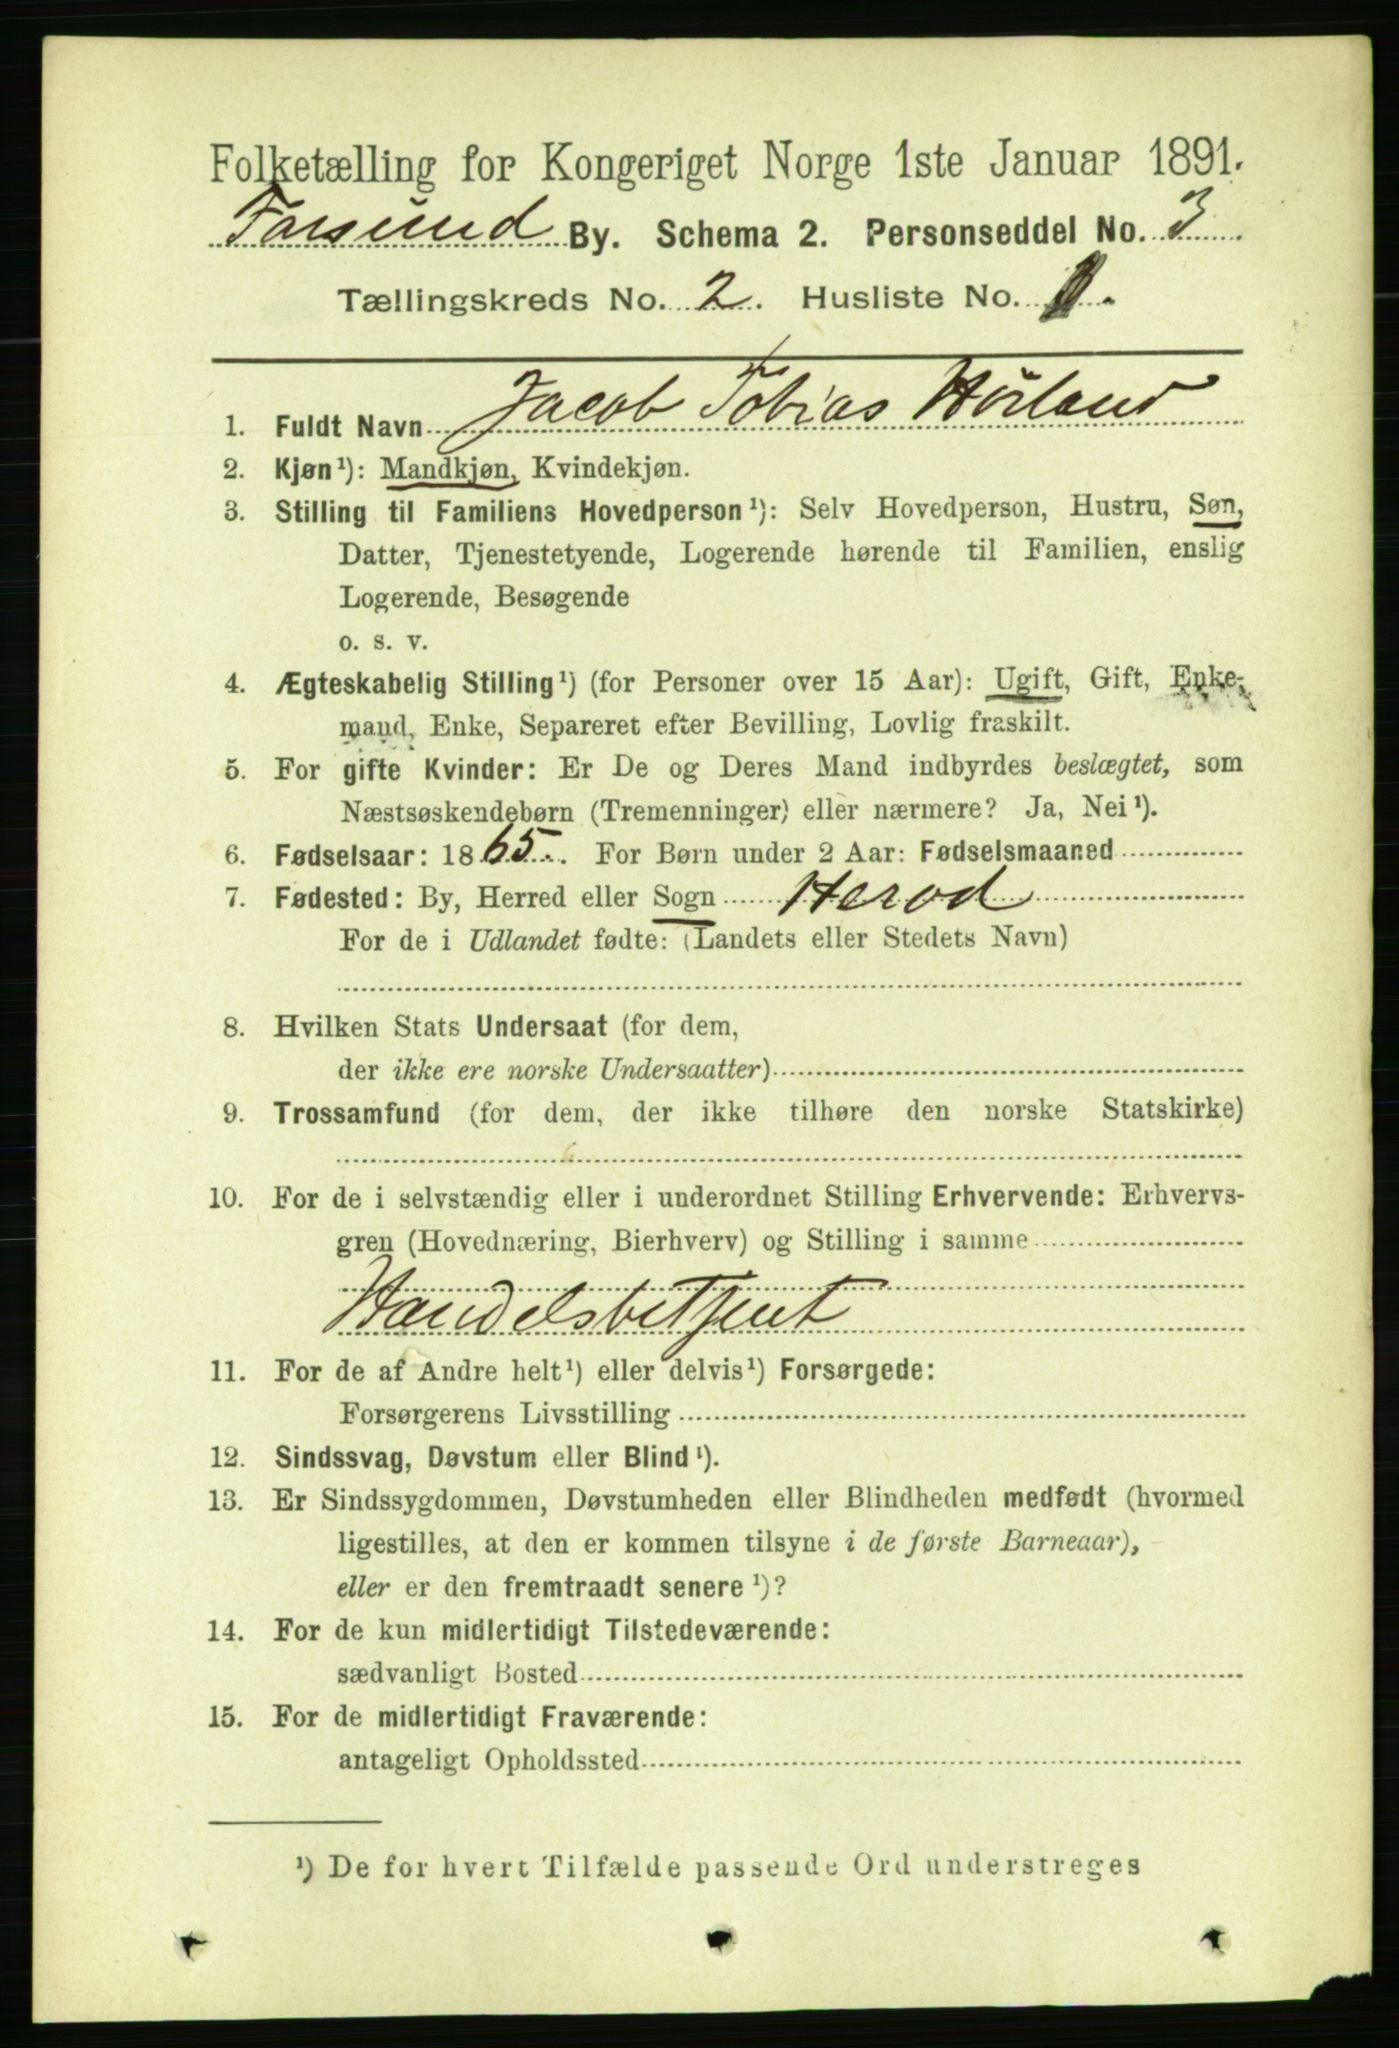 Folketælling for Kongeriget Norge 1ste Januar 1891.
Farsund By. Schema 2. Personseddel No. 3
Tællingskreds No. 2. Husliste No. 1.
1. Fuldt Navn Jacob Tobias Hörland
2. Kjøn¹): Mandkjøn, Kvindekjøn.
3. Stilling til Familiens Hovedperson¹): Selv Hovedperson, Hustru, Søn,
Datter, Tjenestetyende, Logerende hørende til Familien, enslig
Logerende, Besøgende
o. s. v.
4. Ægteskabelig Stilling¹) (for Personer over 15 Aar): Ugift, Gift, Enke-
mand, Enke, Separeret efter Bevilling, Lovlig fraskilt.
5. For gifte Kvinder: Er De og Deres Mand indbyrdes beslægtet, som
Næstsøskendebørn (Tremenninger) eller nærmere? Ja, Nei¹).
6. Fødselsaar: 1865. For Børn under 2 Aar: Fødselsmaaned
7. Fødested: By, Herred eller Sogn Herod
For de i Udlandet fødte: (Landets eller Stedets Navn)
8. Hvilken Stats Undersaat (for dem,
der ikke ere norske Undersaatter)
9. Trossamfund (for dem, der ikke tilhøre den norske Statskirke)
10. For de i selvstændig eller i underordnet Stilling Erhvervende: Erhvervs-
gren (Hovednæring, Bierhverv) og Stilling i samme
Handelsbetjent
11. For de af Andre helt¹) eller delvis¹) Forsørgede:
Forsørgerens Livsstilling
12. Sindssvag, Døvstum eller Blind¹).
13. Er Sindssygdommen, Døvstumheden eller Blindheden medfødt (hvormed
ligestilles, at den er kommen tilsyne i de første Barneaar),
eller er den fremtraadt senere¹)?
14. For de kun midlertidigt Tilstedeværende:
sædvanligt Bosted
15. For de midlertidigt Fraværende:
antageligt Opholdssted
¹) De for hvert Tilfælde passende Ord understreges